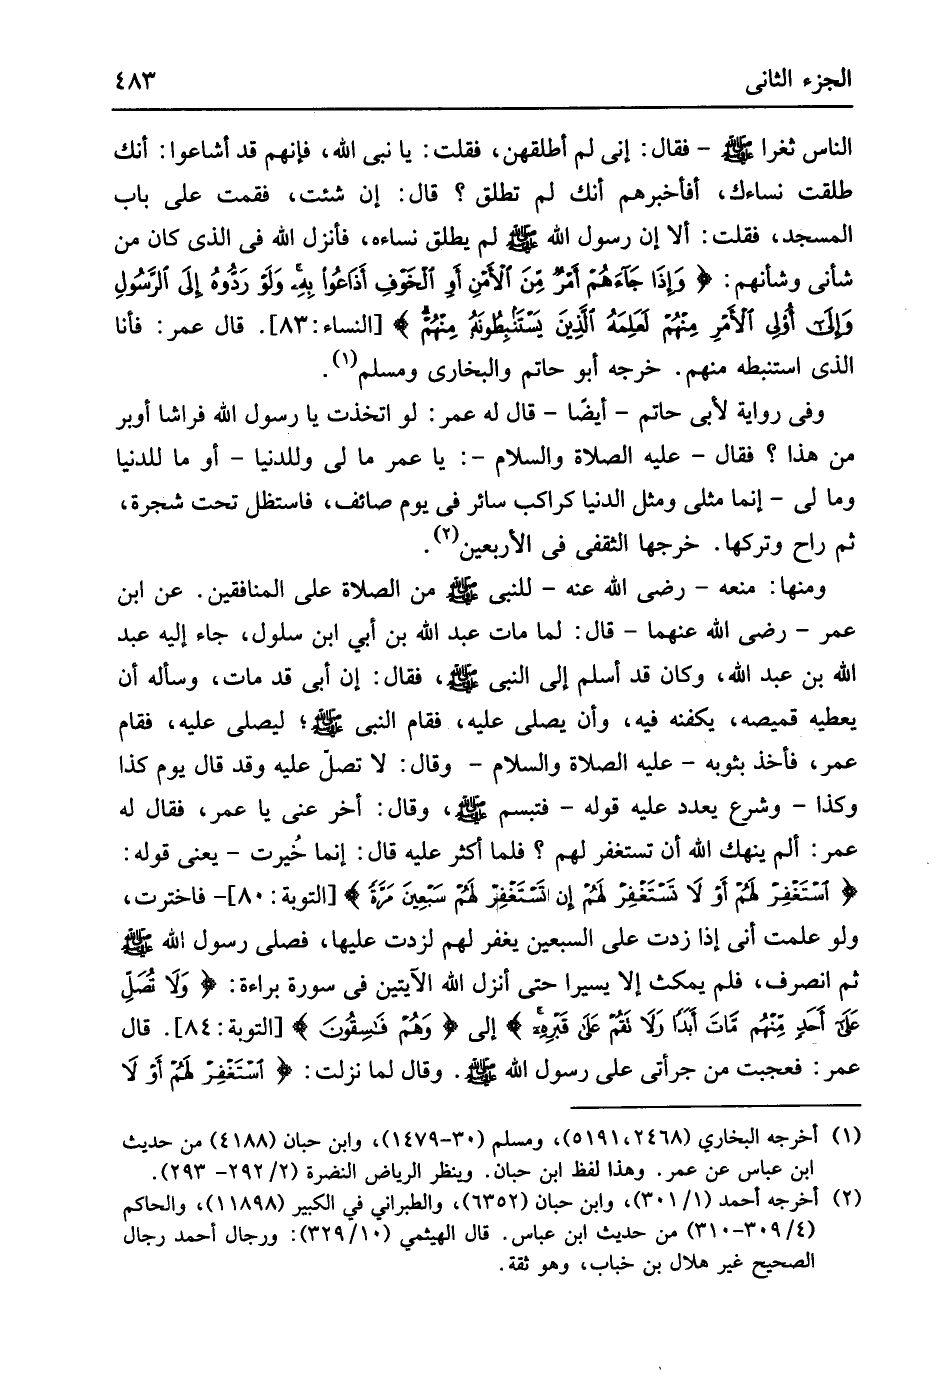 الجزء الثانى
٤٨٣
الناس ثغرا ﷺ - فقال: إنى لم أطلقهن، فقلت: يا نبى الله، فإنهم قد أشاعوا: أنك
طلقت نساءك، أفأخبرهم أنك لم تطلق ؟ قال: إن شئت، فقمت على باب
المسجد، فقلت: ألا إن رسول الله ﷺ لم يطلق نساءه، فأنزل الله فى الذى كان من
شأنى وشأنهم: ﴿ وَإِذَا جَآءَهُمْ أَمْرٌ مِّنَ ٱلْأَمْنِ أَوِ ٱلْخَوْفِ أَذَاعُوا۟ بِهِۦۖ وَلَوْ رَدُّوهُ إِلَى ٱلرَّسُولِ
وَإِلَىٰٓ أُو۟لِى ٱلْأَمْرِ مِنْهُمْ لَعَلِمَهُ ٱلَّذِينَ يَسْتَنۢبِطُونَهُۥ مِنْهُمْۗ ﴾ [النساء:٨٣]. قال عمر: فأنا
الذى استنبطه منهم. خرجه أبو حاتم والبخارى ومسلم(١).
وفى رواية لأبى حاتم - أيضًا - قال له عمر: لو اتخذت يا رسول الله فراشا أوبر
من هذا ؟ فقال - عليه الصلاة والسلام -: يا عمر ما لى وللدنيا - أو ما للدنيا
وما لى - إنما مثلى ومثل الدنيا كراكب سائر فى يوم صائف، فاستظل تحت شجرة،
ثم راح وتركها. خرجها الثقفى فى الأربعين(٢).
ومنها: منعه - رضى الله عنه - للنبى ﷺ من الصلاة على المنافقين. عن ابن
عمر - رضى الله عنهما - قال: لما مات عبد الله بن أبي ابن سلول، جاء إليه عبد
الله بن عبد الله، وكان قد أسلم إلى النبى ﷺ، فقال: إن أبى قد مات، وسأله أن
يعطيه قميصه، يكفنه فيه، وأن يصلى عليه، فقام النبى ﷺ؛ ليصلى عليه، فقام
عمر، فأخذ بثوبه - عليه الصلاة والسلام - وقال: لا تصلّ عليه وقد قال يوم كذا
وكذا - وشرع يعدد عليه قوله - فتبسم ﷺ، وقال: أخر عنى يا عمر، فقال له
عمر: ألم ينهك الله أن تستغفر لهم ؟ فلما أكثر عليه قال: إنما خُيرت - يعنى قوله:
﴿ ٱسْتَغْفِرْ لَهُمْ أَوْ لَا تَسْتَغْفِرْ لَهُمْ إِن تَسْتَغْفِرْ لَهُمْ سَبْعِينَ مَرَّةً ﴾ [التوبة:٨٠]- فاخترت،
ولو علمت أنى إذا زدت على السبعين يغفر لهم لزدت عليها، فصلى رسول الله ﷺ
ثم انصرف، فلم يمكث إلا يسيرا حتى أنزل الله الآيتين فى سورة براءة: ﴿ وَلَا تُصَلِّ
عَلَىٰٓ أَحَدٍ مِّنْهُم مَّاتَ أَبَدًا وَلَا تَقُمْ عَلَىٰ قَبْرِهِۦٓۖ ﴾ إلى ﴿ وَهُمْ فَـٰسِقُونَ ﴾ [التوبة:٨٤]. قال
عمر: فعجبت من جرأتى على رسول الله ﷺ. وقال لما نزلت: ﴿ ٱسْتَغْفِرْ لَهُمْ أَوْ لَا
(١) أخرجه البخاري (٥١٩١،٢٤٦٨)، ومسلم (٣٠-١٤٧٩)، وابن حبان (٤١٨٨) من حديث
ابن عباس عن عمر. وهذا لفظ ابن حبان. وينظر الرياض النضرة (٢/ ٢٩٢- ٢٩٣).
(٢) أخرجه أحمد (٣٠١/١)، وابن حبان (٦٣٥٢)، والطبراني في الكبير (١١٨٩٨)، والحاكم
(٣٠٩/٤-٣١٠) من حديث ابن عباس. قال الهيثمي (٣٢٩/١٠): ورجال أحمد رجال
الصحيح غير هلال بن خباب، وهو ثقة.